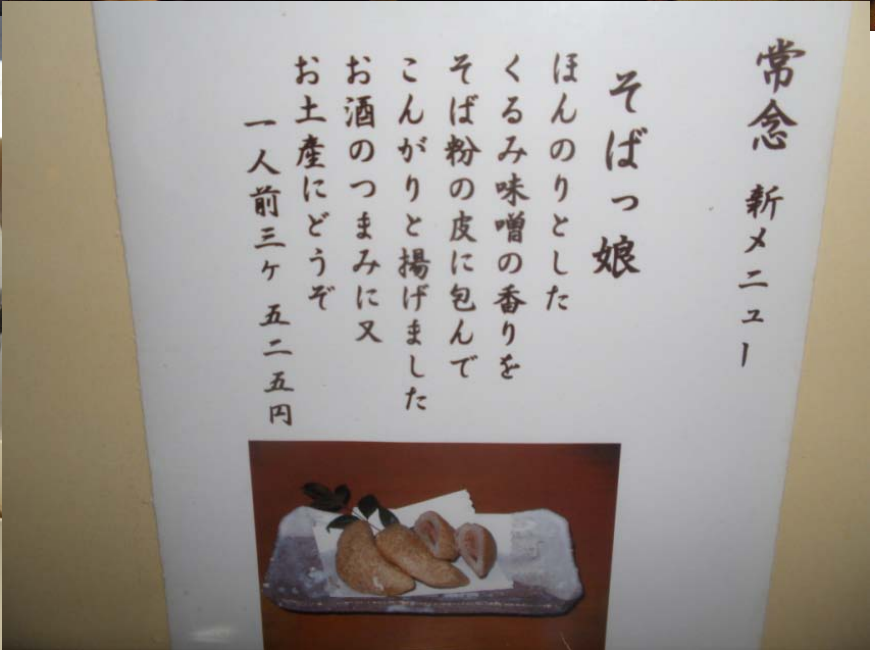 常念 新メニュー
そばっ娘
ほんのりとした
くるみ味噌の香りを
そば粉の皮に包んで
こんがりと揚げました
お酒のつまみに又
お土産にどうぞ
一人前三ヶ 五二五円